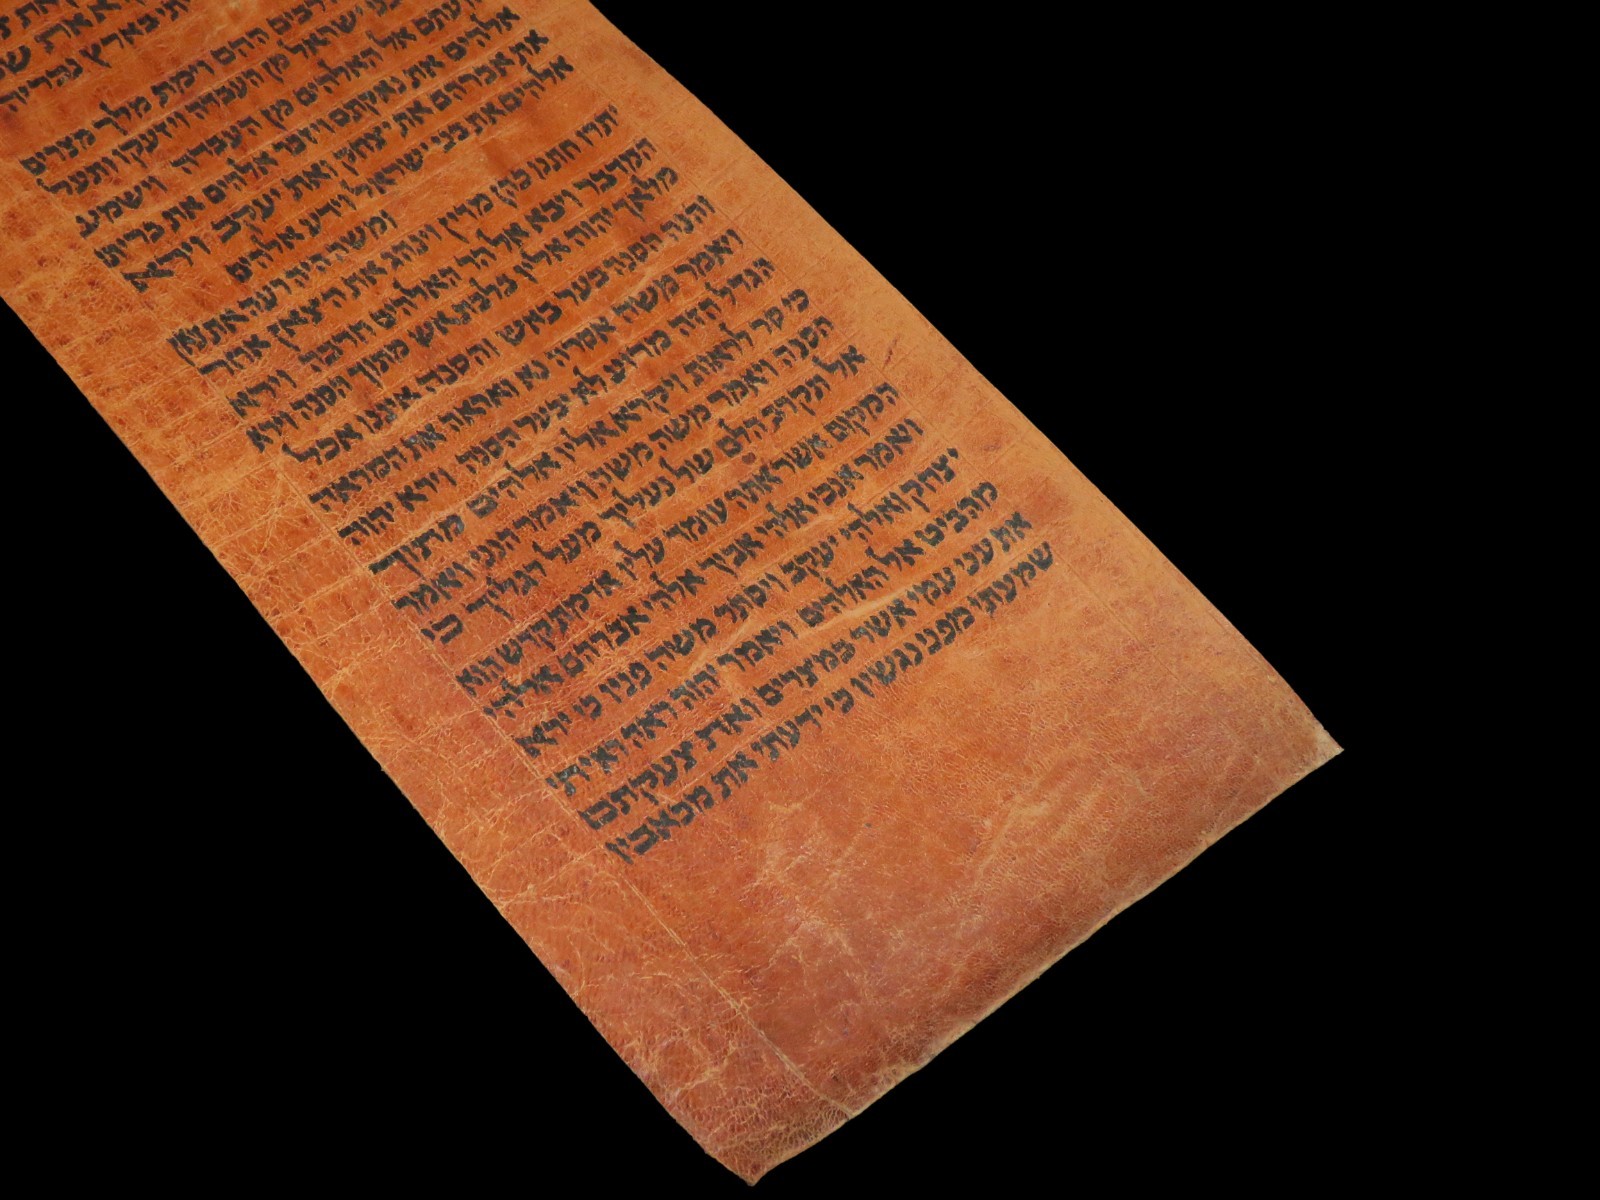 בארץ נכריה
הרבים ההם וימת מלך מצרים
ישראל מן העבדה ויזעקו ותעל
שועתם אל האלהים מן העבדה וישמע
אלהים את נאקתם ויזכר אלהים את בריתו
את אברהם את יצחק ואת יעקב וירא
אלהים את בני ישראל וידע אלהים
ומשה היה רעה את צאן
יתרו חתנו כהן מדין וינהג את הצאן אחר
המדבר ויבא אל הר האלהים חרבה וירא
מלאך יהוה אליו בלבת אש מתוך הסנה וירא
והנה הסנה בער באש והסנה איננו אכל
ויאמר משה אסרה נא ואראה את המראה
הגדל הזה מדוע לא יבער הסנה וירא יהוה
כי סר לראות ויקרא אליו אלהים מתוך
הסנה ויאמר משה משה ויאמר הנני ויאמר
אל תקרב הלם של נעליך מעל רגליך כי
המקום אשר אתה עומד עליו אדמת קדש הוא
ויאמר אנכי אלהי אביך אלהי אברהם אלהי
יצחק ואלהי יעקב ויסתר משה פניו כי ירא
מהביט אל האלהים ויאמר יהוה ראה ראיתי
את עני עמי אשר במצרים ואת צעקתם
שמעתי מפני נגשיו כי ידעתי את מכאביו